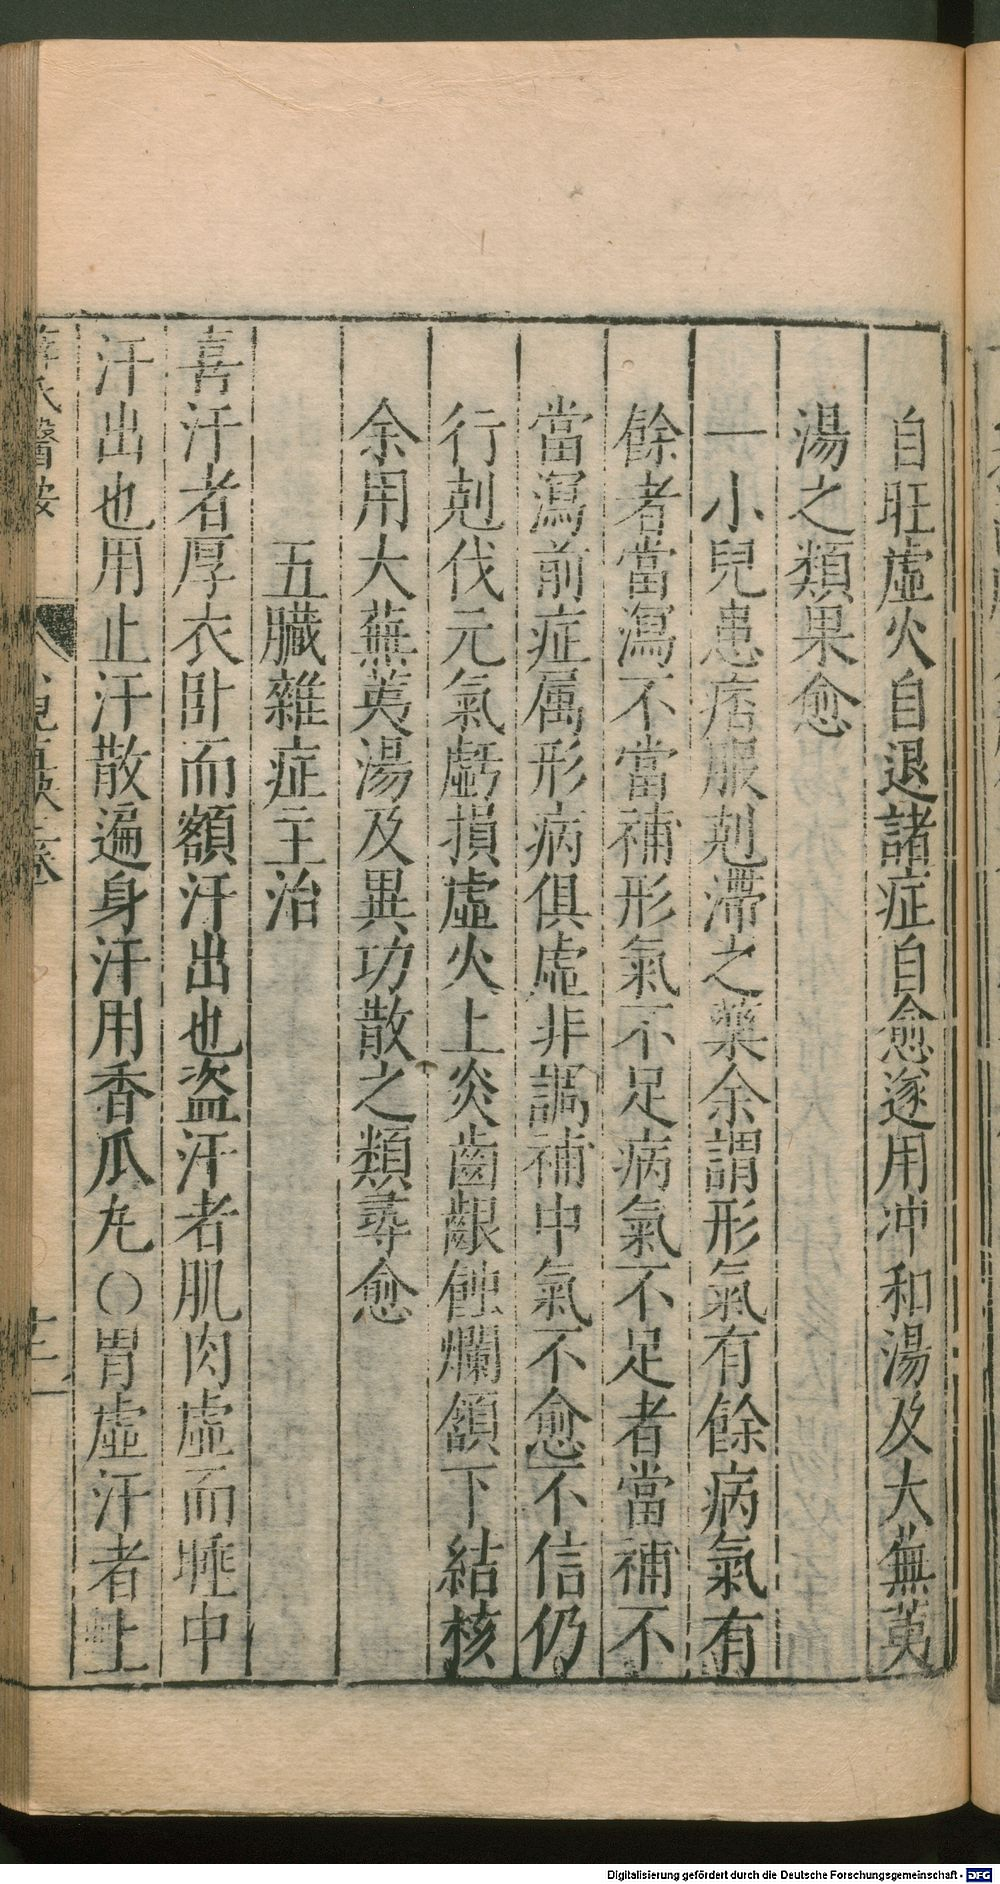 自旺虛火自退諸症自愈遂用冲和湯及大蕪荑
湯之類果愈
一小兒患痞服剋滯之藥余謂形氣有餘病氣有
餘者當瀉不當補形氣不足病氣不足者當補不
當瀉前症属形病俱虛非調補中氣不愈不信仍
行剋伐元氣虧損虛火上炎齒齦蝕爛頷下結核
余用大蕪荑湯及異功散之類尋愈
五臟雜症主治
喜汗者厚衣卧而額汗出也盗汗者肌肉虛而睡中
汗出也用止汗散遍身汗用香瓜丸〇胃虛汗者上
薛氏醫按
Digitalisierung gefördert durch die Deutsche Forschungsgemeinschaft - DFG